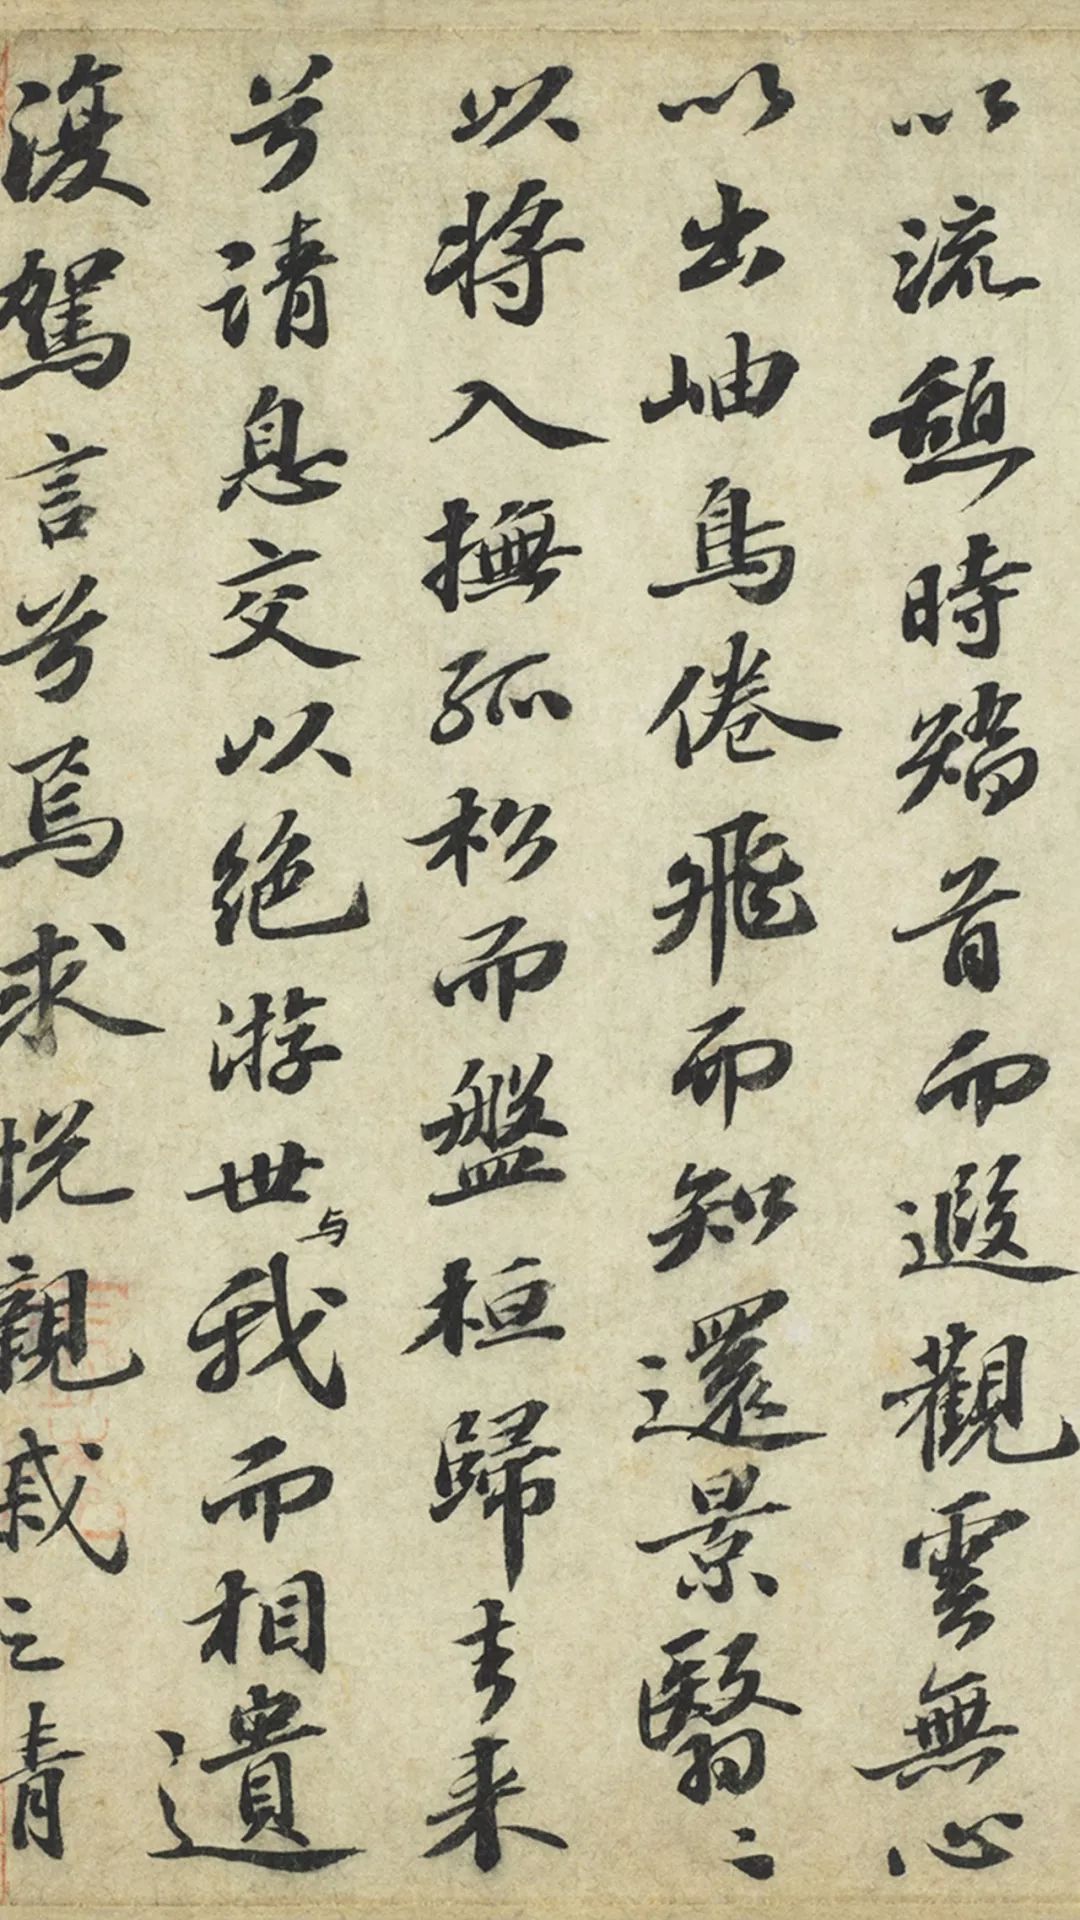 以流憩時矯首而遐觀雲無心
以出岫鳥倦飛而知還景翳〻
以将入撫孤松而盤桓歸去来
兮請息交以絶游世与我而相遺
復駕言兮焉求悦親戚之情